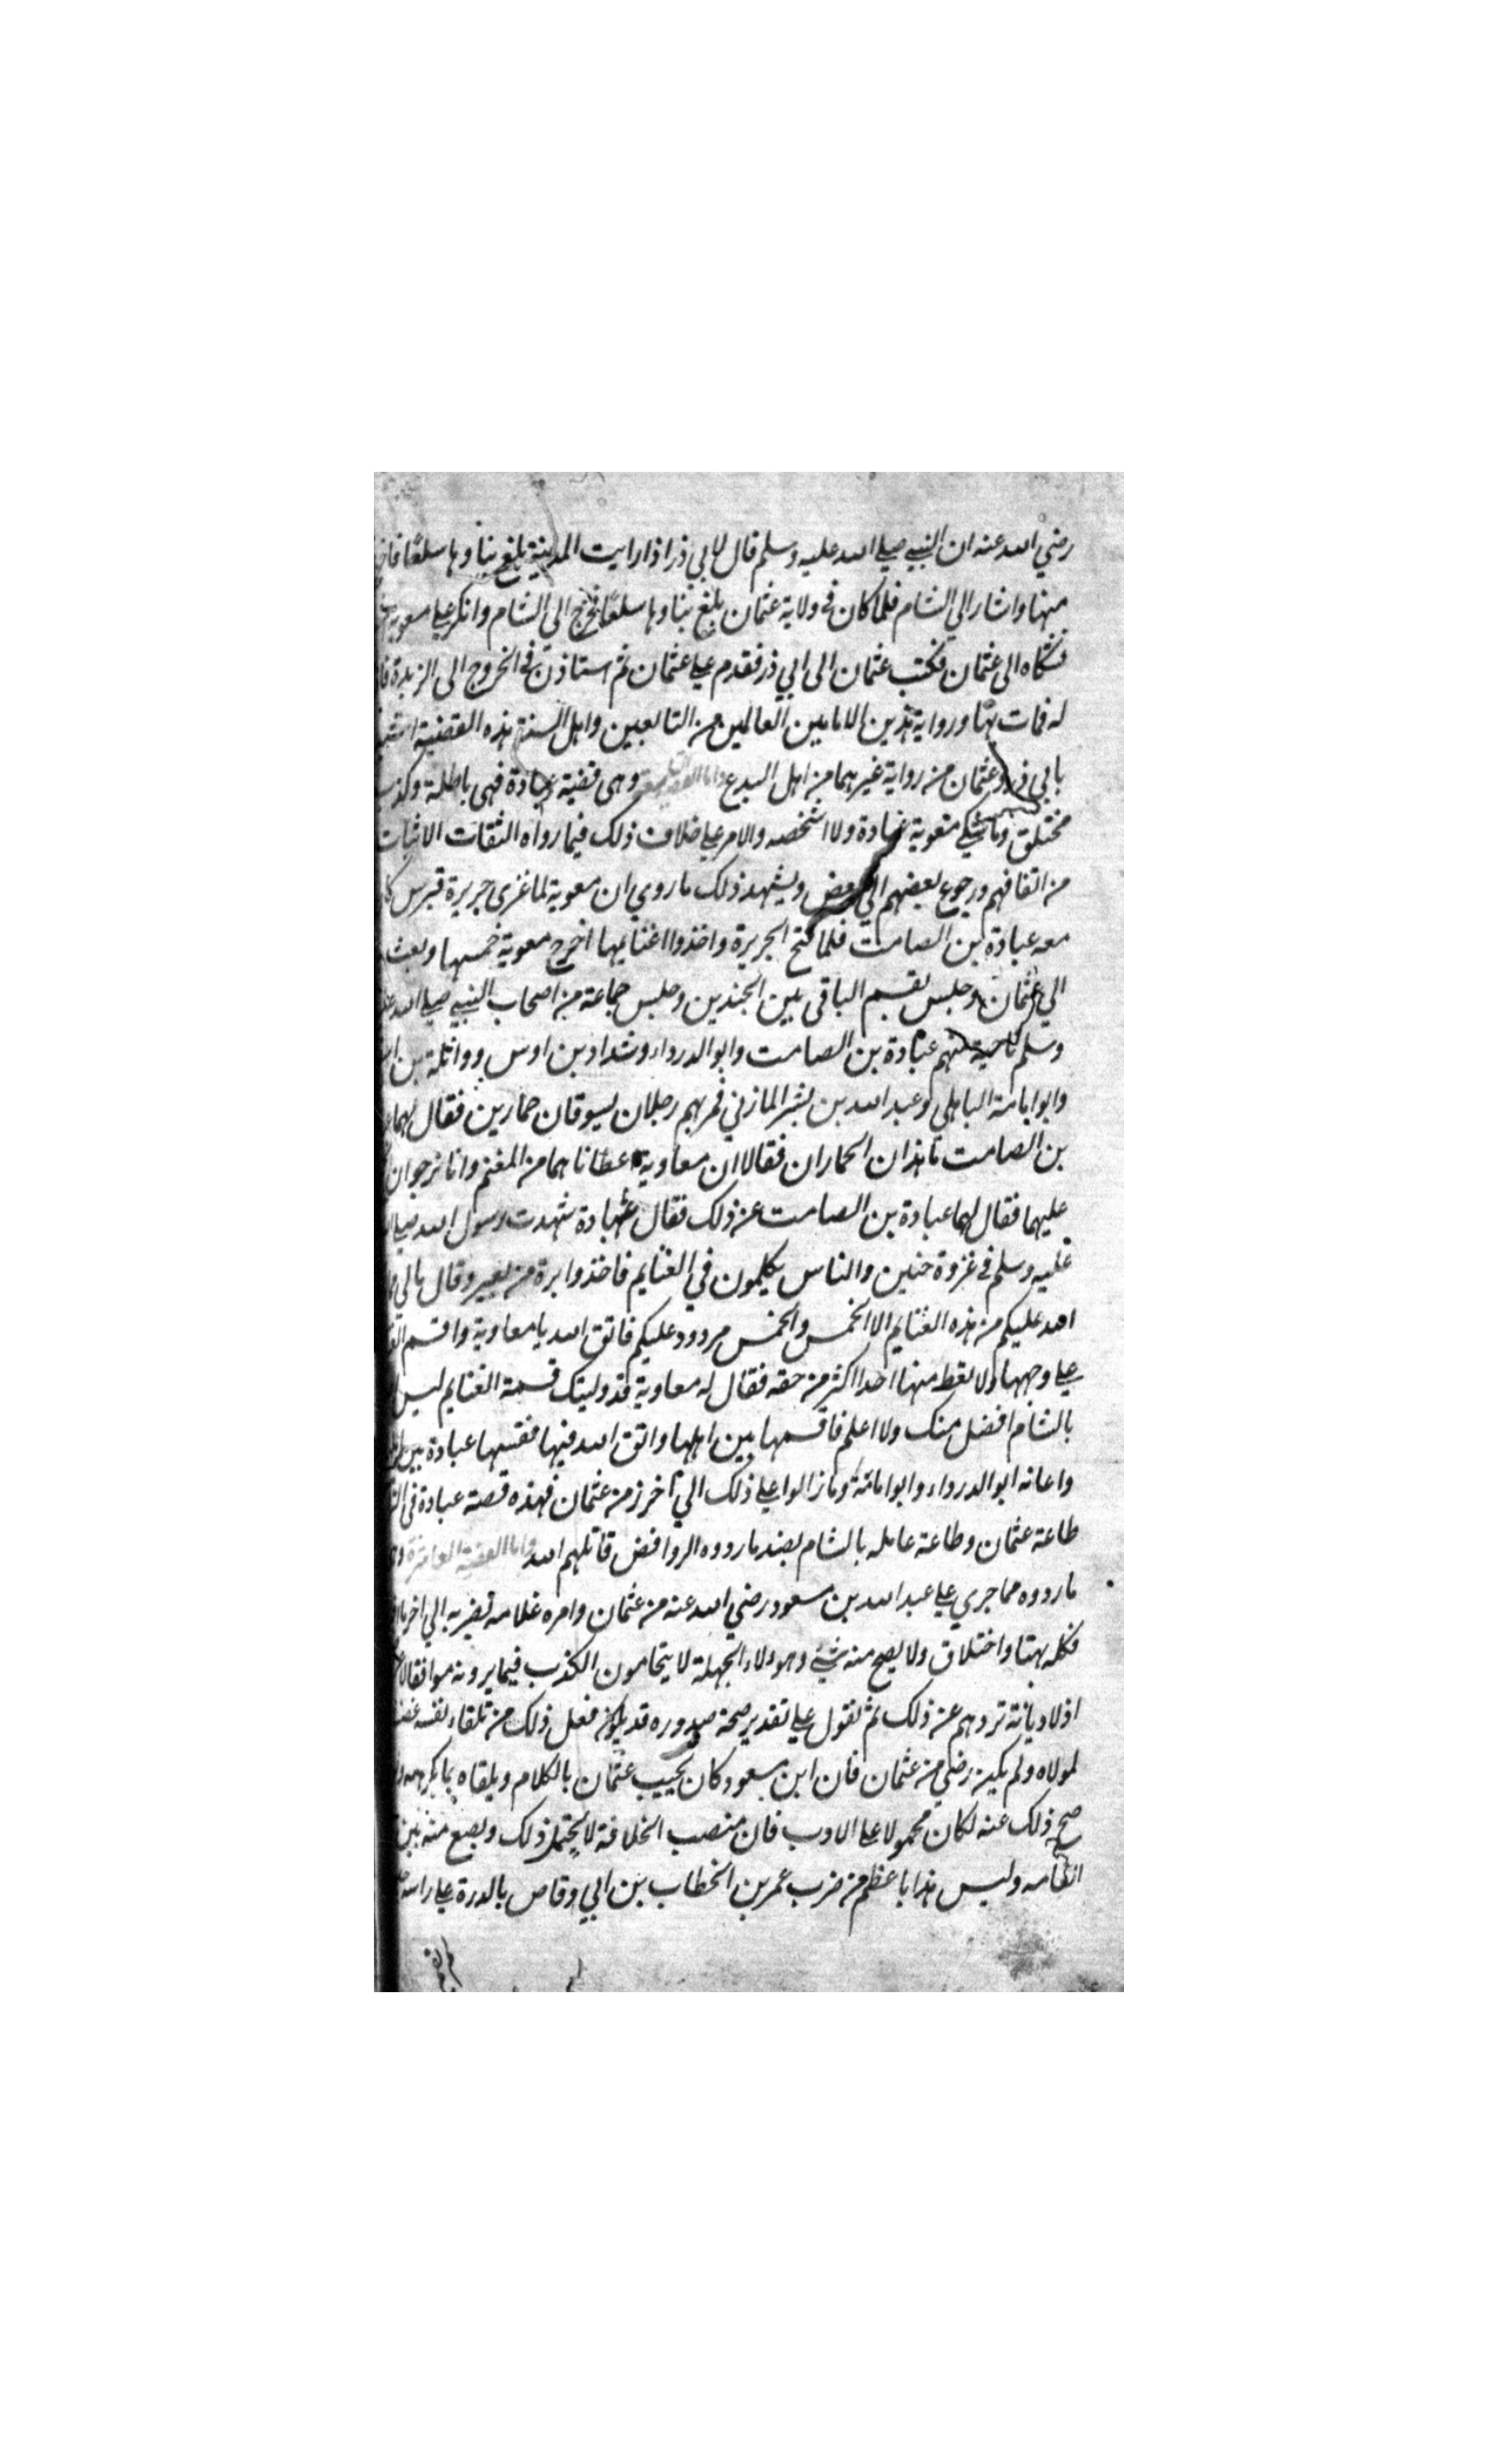 رضي الله عنه ان النبي صلي الله عليه وسلم قال لابي ذر اذا رايت المدينة بلغ بناوها سلعا
منها واشار الي الشام فلما كان في ولاية عثمان بلغ بناوها سلعا فخرج الي الشام وانكر علي معوية
فشكاه الى عثمان فكتب عثمان الى ابي ذر فقدم علي عثمان ثم استاذن في الخروج الى الربذة
له فمات بها ورواية هذين الامامين العالمين من التابعين واهل السنة هذه القضية
بابي ذر وعثمان من رواية غيرهما من اهل البدع واما القضية وهى قضية عبادة فهى باطلة وكذب
مختلق وما شكي معوية عبادة ولا اشخصه والامر علي خلاف ذلك فيما رواه الثقات الاثبات
من اتفاقهم ورجوع بعضهم الي بعض ويشهد ذلك ما روي ان معوية لما غزى جزيرة قبرس
معه عبادة بن الصامت فلما فتح الجزيرة واخذوا غنايمها اخرج معوية خمسها وبعث
الي عثمان وجلس يقسم الباقى بين الجندين وجلس جماعة من اصحاب النبي صلي الله
وسلم ناحية منهم عبادة بن الصامت وابو الدرداء وشداد بن اوس وواثلة بن
وابو امامة الباهلي وعبد الله بن بشر المازني فمر بهم رجلان يسوقان حمارين فقال لهما
بن الصامت ما هذان الحماران فقالا ان معاوية اعطاناهما من المغنم وانا نرجوا ان
عليهما فقال لهما عبادة بن الصامت عن ذلك فقال عبادة شهدت رسول الله صلي
عليه وسلم في غزوة حنين والناس يكلمون في الغنايم فاخذ وابرة من بعير وقال مالي
عليكم من هذه الغنايم الا الخمس والخمس مردود عليكم فاتق الله يا معاوية واقسم
علي وجهها ولا تعط منها احدا اكثر من حقه فقال له معاوية قد وليتك قسمة الغنايم ليس
بالشام افضل منك ولا اعلم فاقسمها بين اهلها واتق الله فيها فقسمها عبادة بين
واعانه ابو الدرداء وابو امامة وما زالوا علي ذلك الي اخر زمن عثمان فهذه قصة عبادة فى
طاعة عثمان وطاعة عامله بالشام بضد ما رووه الروافض قاتلهم الله واما القضية العاشرة
ما رووه مما جري علي عبد الله بن مسعود رضي الله عنه من عثمان وامره غلامه بضربه الي اخر
فكله بهتا واختلاق ولا يصح منه شئ وهولاء الجهلة لا يتحامون الكذب فيما يرونه موافقا
اذ لا ديانة تردهم عن ذلك ثم نقول علي تقدير صحة صدوره قد يكون فعل ذلك من تلقاء نفسه
لمولاه ولم يكن رضي من عثمان فان ابن مسعود كان يجيب عثمان بالكلام ويلقاه بما يكرهه
صح ذلك عنه لكان محمولا علي الادب فان منصب الخلافة لا يحتمل ذلك ويضع منه بين
العامه وليس هذا باعظم من ضرب عمر بن الخطاب بن ابي وقاص بالدرة علي راسه